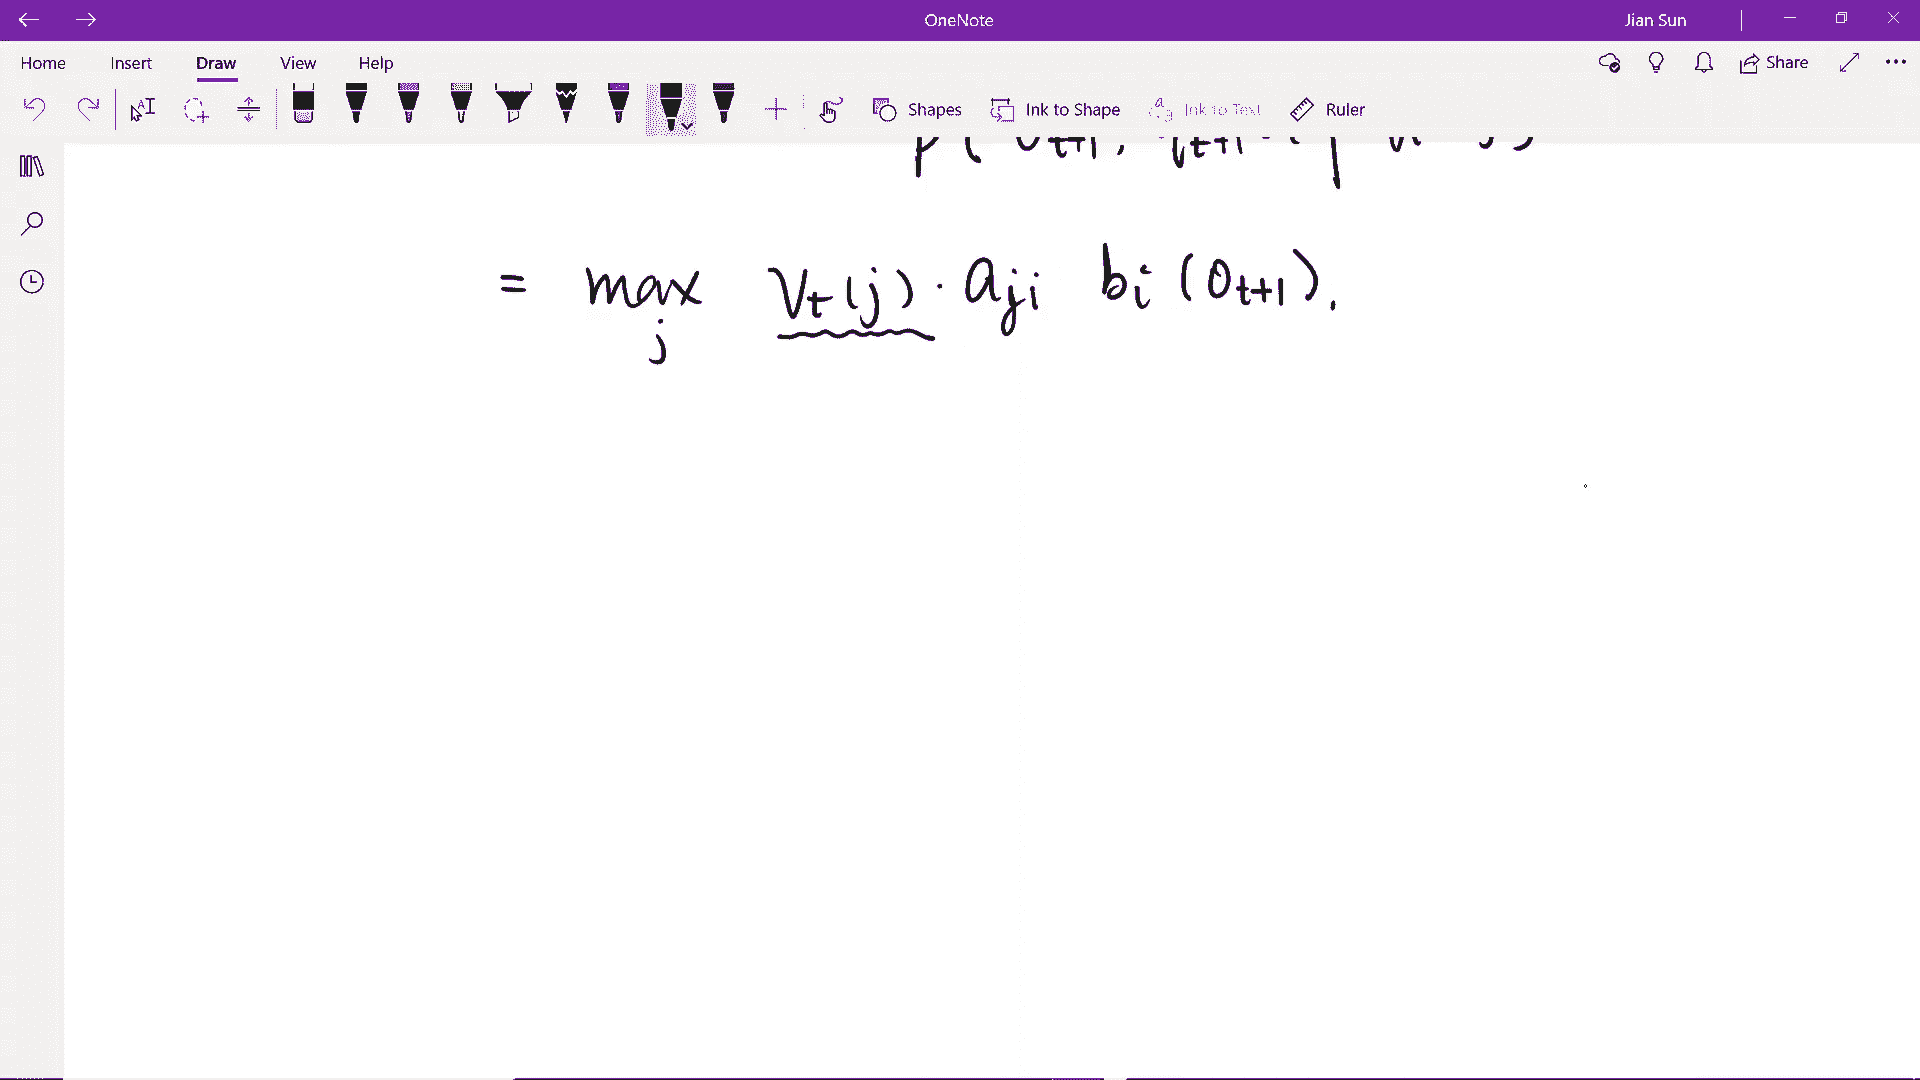 OneNote
Jian Sun
Home Insert Draw View Help
Share
Shapes Ink to Shape Ink to Text Ruler
= max V_t(j) · a_{ji} b_i(O_{t+1}).
j